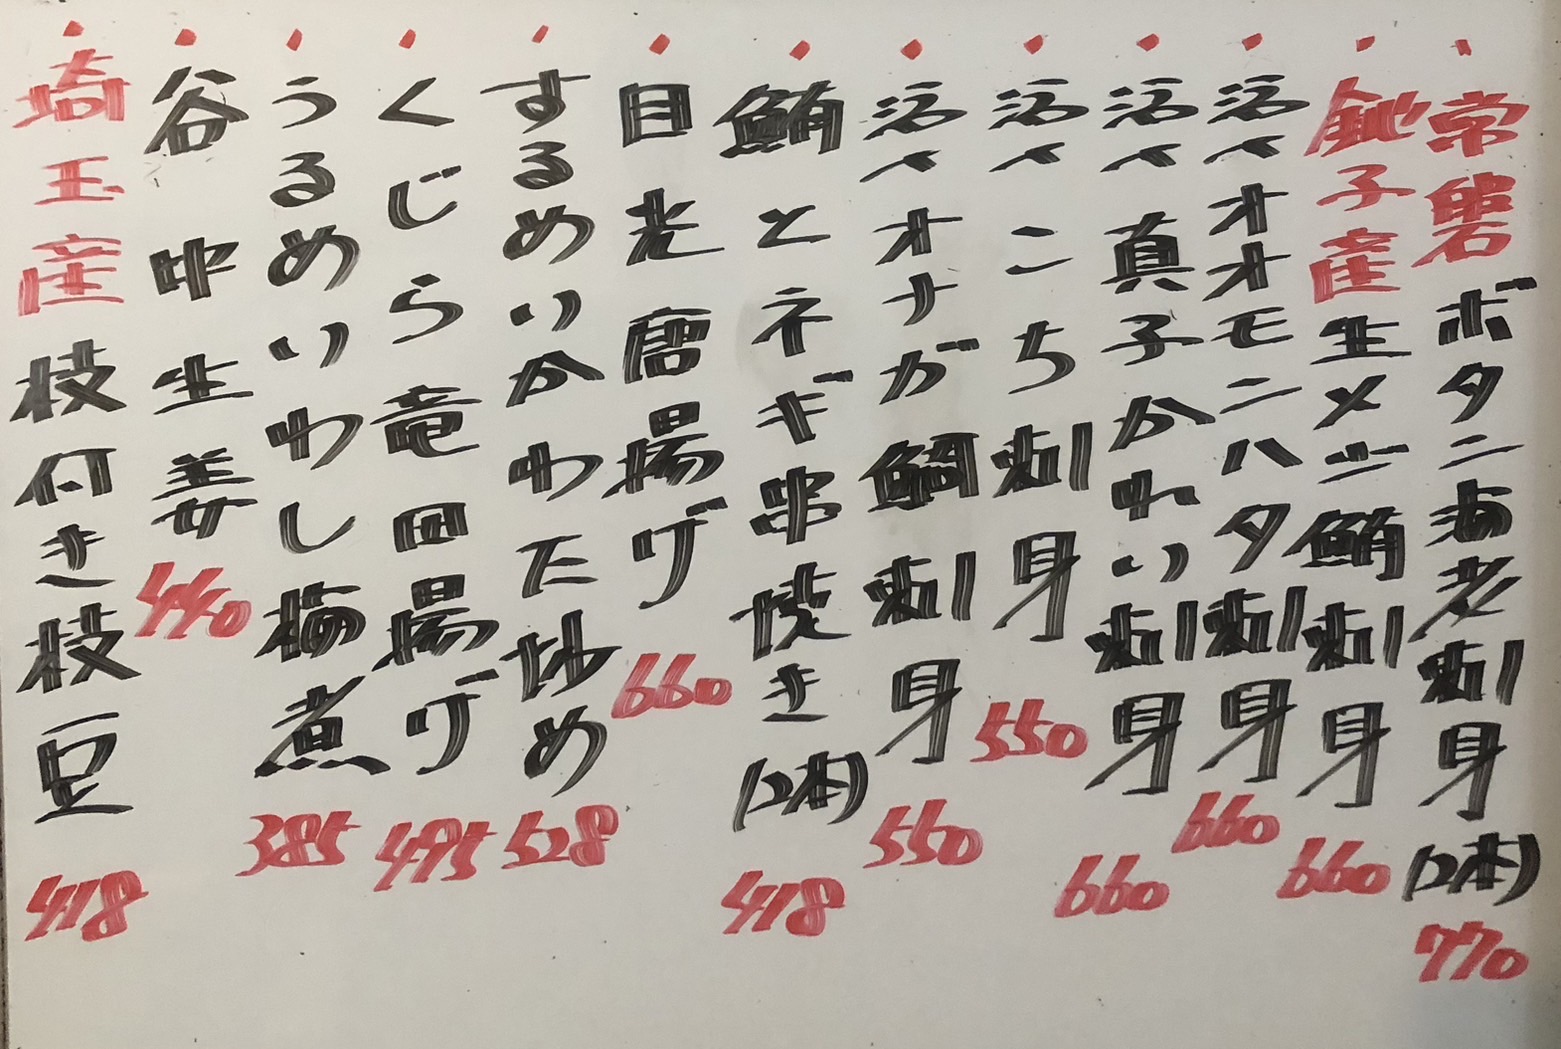 常磐ボタン海老刺身(2本) 770
銚子産生メジ鮪刺身 660
活〆オオモンハタ刺身 660
活〆真子かれい刺身 660
活〆こち刺身 550
活〆オナガ鯛刺身 550
鮪とネギ串焼き(2本) 418
目光唐揚げ 660
するめいかわた炒め 528
くじら竜田揚げ 495
うるめいわし梅煮 385
谷中生姜 440
埼玉産枝付き枝豆 418